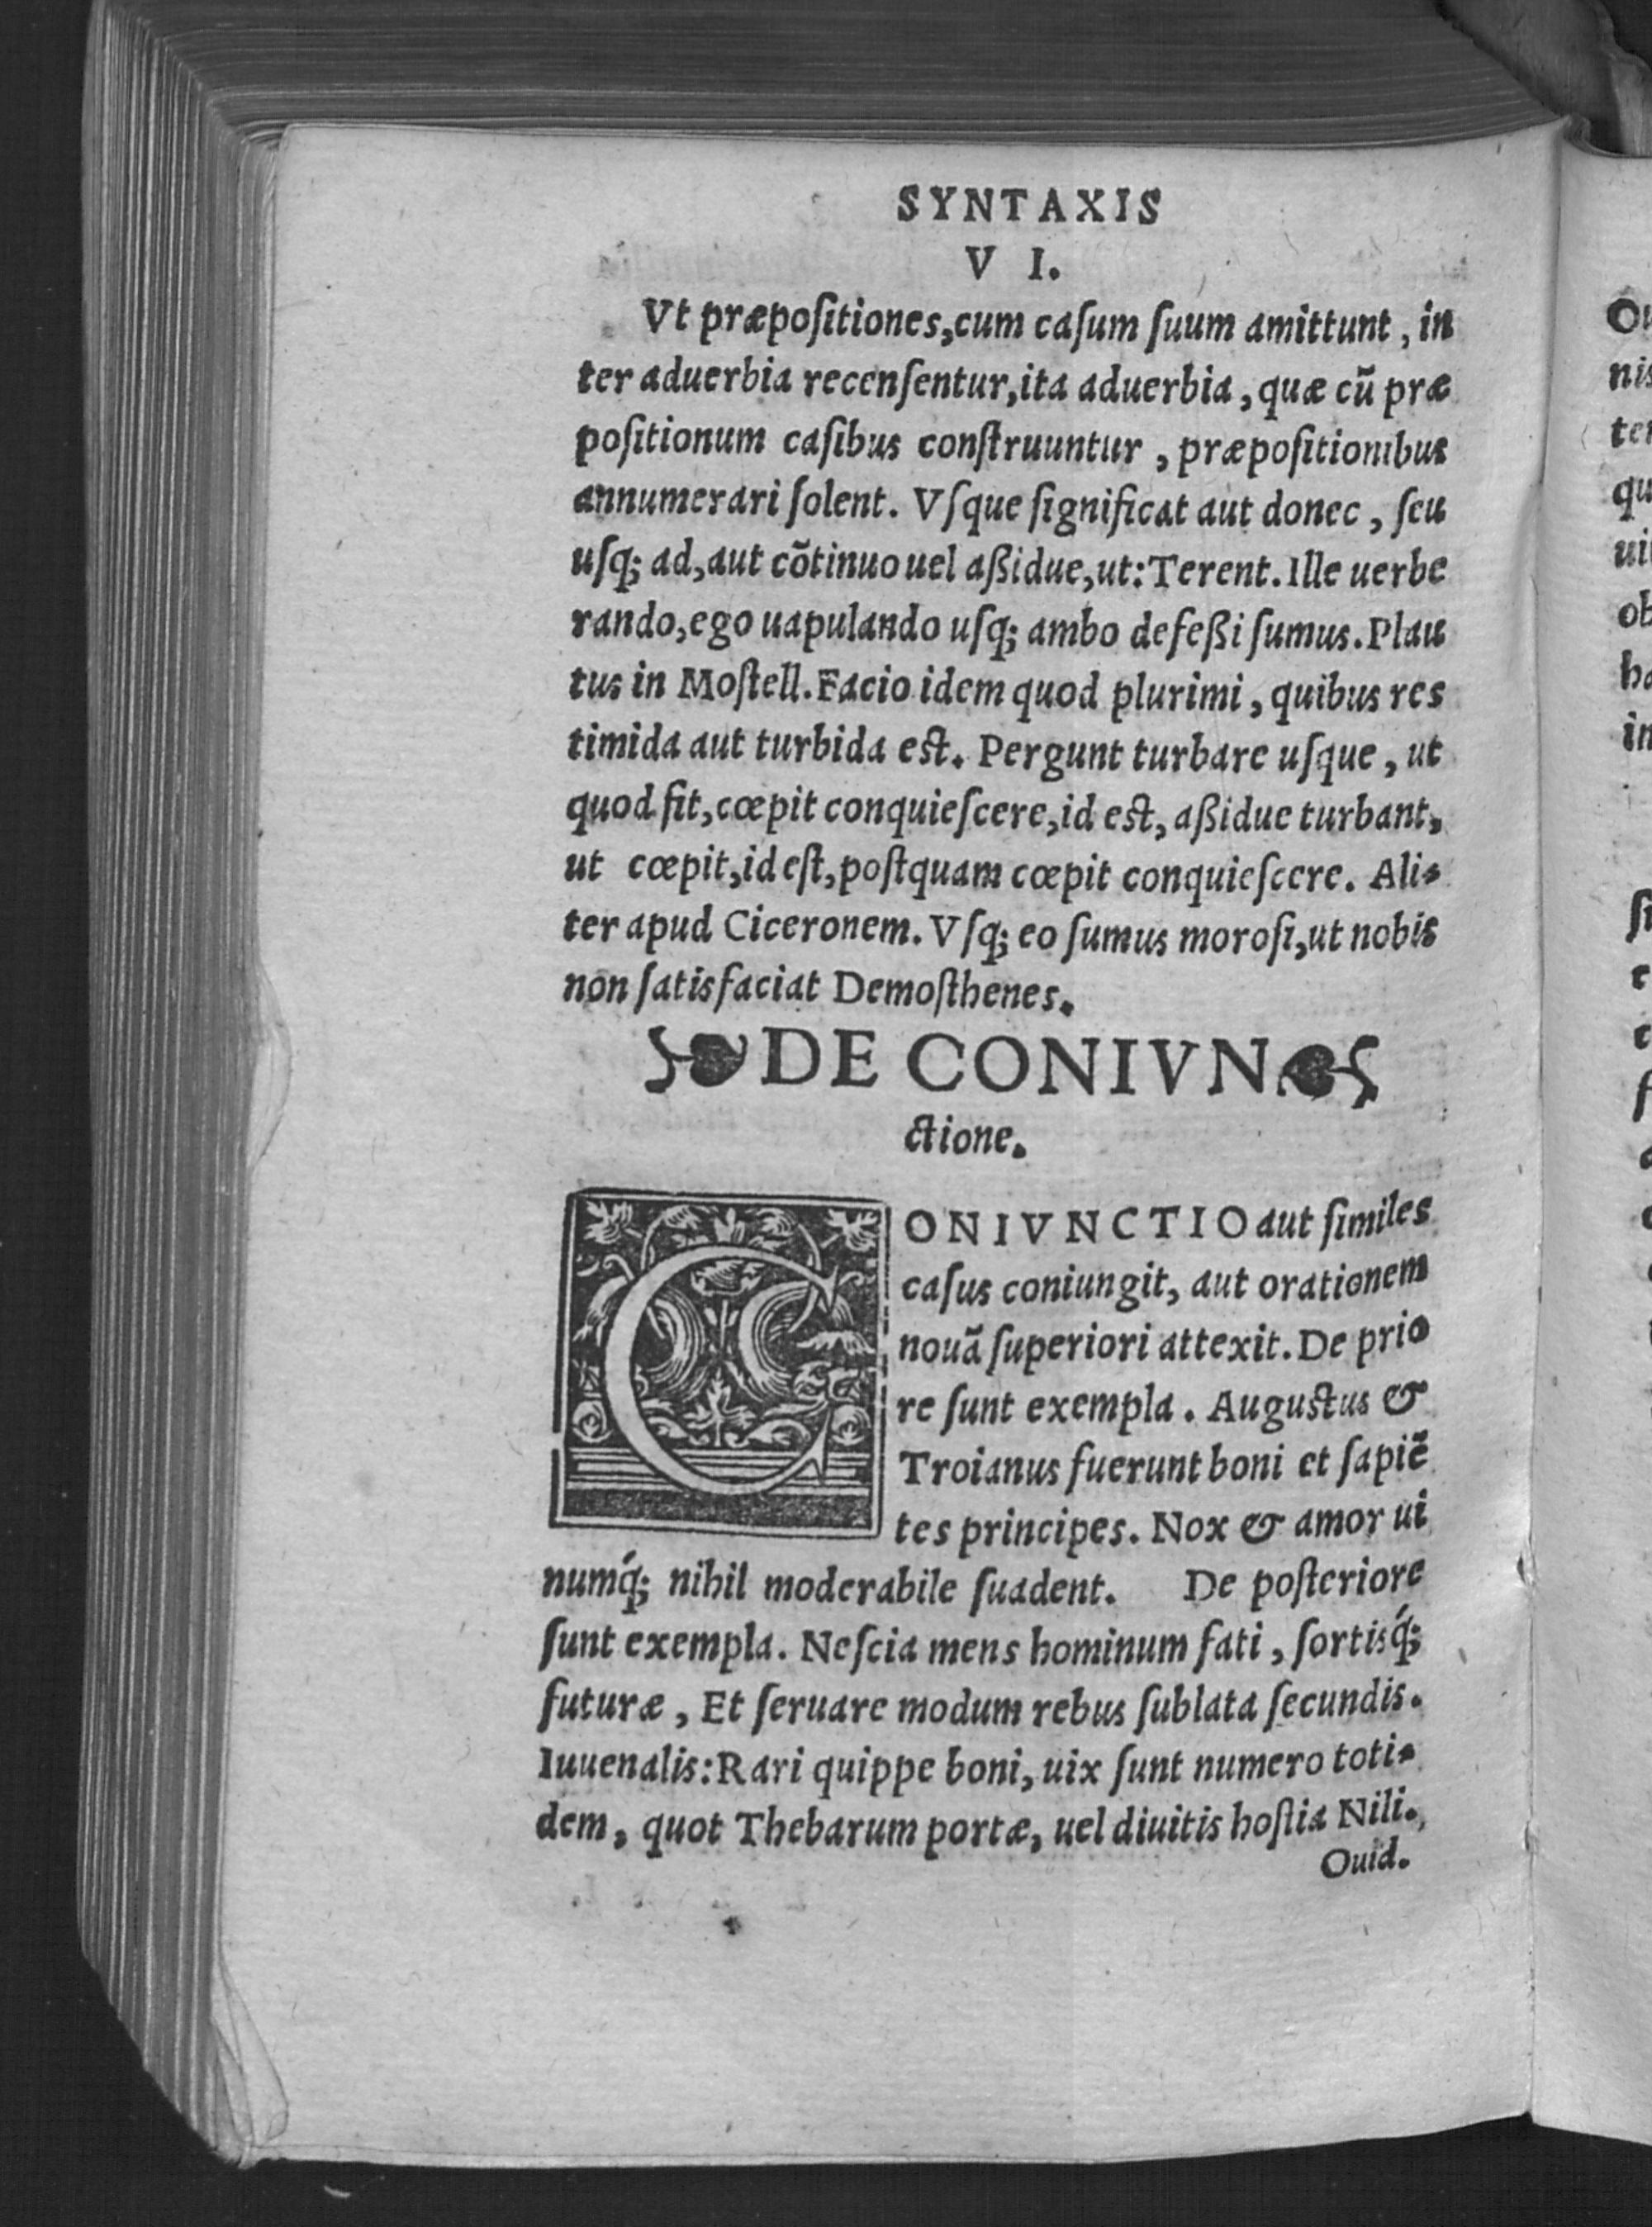 SYNTAXIS
V I.
Vt præpoſitiones,cum caſum ſuum amittunt, in
ter aduerbia recenſentur,ita aduerbia, quæ cū præ
poſitionum caſibus conſtruuntur, præpoſitionibus
annumerari ſolent. Vſque ſignificat aut donec, ſeu
uſq; ad,aut cōtinuo uel aßidue,ut: Terent. Ille uerbe
rando,ego uapulando uſq; ambo defeßi ſumus. Plau
tus in Moſtell. Facio idem quod plurimi, quibus res
timida aut turbida eſt. Pergunt turbare uſque, ut
quod fit,cœpit conquieſcere,id eſt, aßidue turbant,
ut cœpit,id eſt,poſtquam cœpit conquieſcere. Ali-
ter apud Ciceronem. Vſq; eo ſumus moroſi,ut nobis
non ſatisfaciat Demoſthenes.
DE CONIVN
ctione.
CONIVNCTIO aut ſimiles
caſus coniungit, aut orationem
nouā ſuperiori attexit. De prio
re ſunt exempla. Auguſtus &
Troianus fuerunt boni et ſapiē
tes principes. Nox & amor ui
numq́; nihil moderabile ſuadent. De poſteriore
ſunt exempla. Neſcia mens hominum fati, ſortisq́;
futuræ, Et ſeruare modum rebus ſublata ſecundis.
Iuuenalis: Rari quippe boni, uix ſunt numero toti-
dem, quot Thebarum portæ, uel diuitis hoſtia Nili.
Ouid.